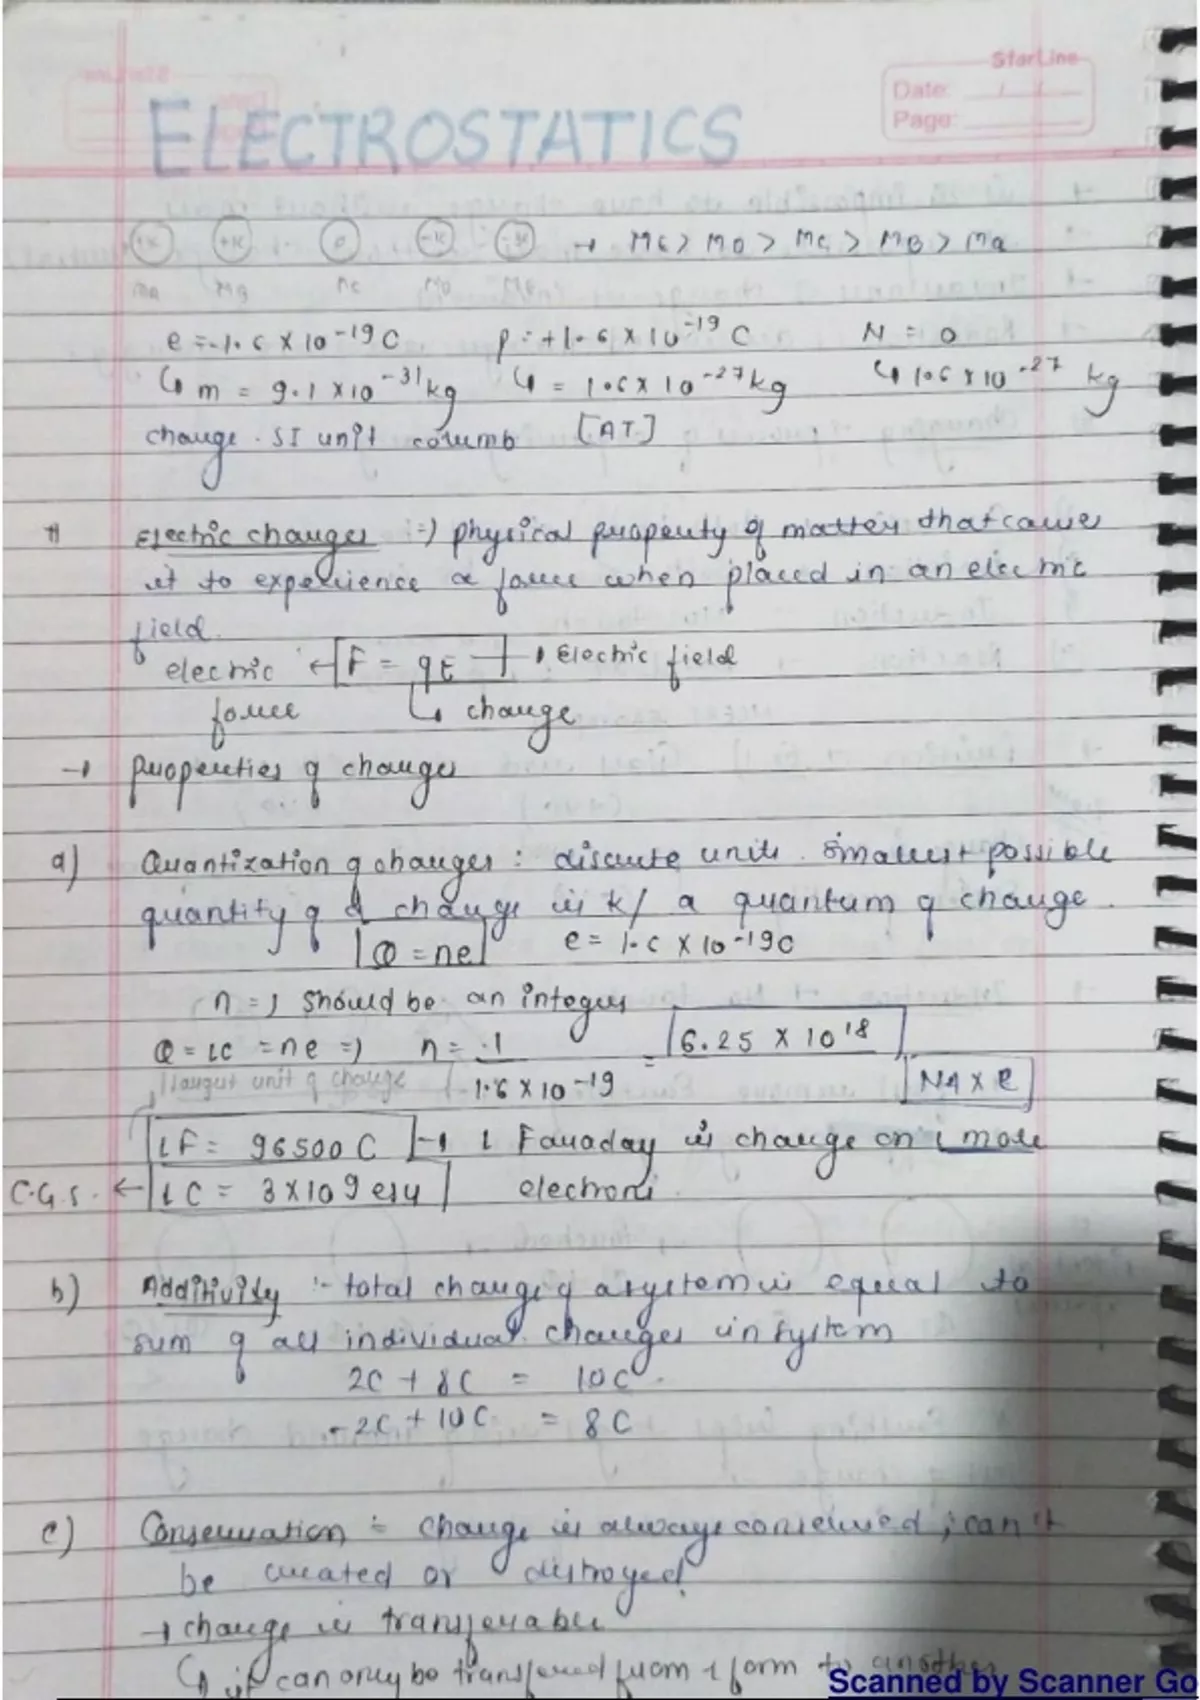 StarLine
Date:
Page:
ELECTROSTATICS
0 → ME > MD > MC > MB > Ma
ma MC MD
e = -1.6 × 10⁻¹⁹ C p = +1.6 × 10⁻¹⁹ C N = 0
↳ m = 9.1 × 10⁻³¹ kg ↳ = 1.6 × 10⁻²⁷ kg ↳ 1.6 × 10⁻²⁷ kg
charge . SI unit coulumb [AT]
Electric charges :=) physical property of matter that causes
it to experience a force when placed in an electric
field.
electric ← F = qE → Electric field
force ↳ charge
→ properties of charges
a) Quantization of charges : discrete units . Smallest possible
quantity of charge is k/ a quantum of charge .
Q = ne e = 1.6 × 10⁻¹⁹ C
n =) should be an integer
Q = 1C = ne =) n = 1 = 6.25 × 10¹⁸
largest unit of charge 1.6 × 10⁻¹⁹ NA × e
1F = 96500 C → 1 Faraday is charge on 1 mole
C.G.S. ← 1C = 3×10⁹ esu electrons
b) Additivity :- total charge of a system is equal to
sum of all individual charges in system
2C + 8C = 10C .
-2C + 10C = 8C
c) Conservation = charge is always conserved ; can't
be created or destroyed
→ charge is transferable
↳ it can only be transfered from 1 form to another
Scanned by Scanner Go